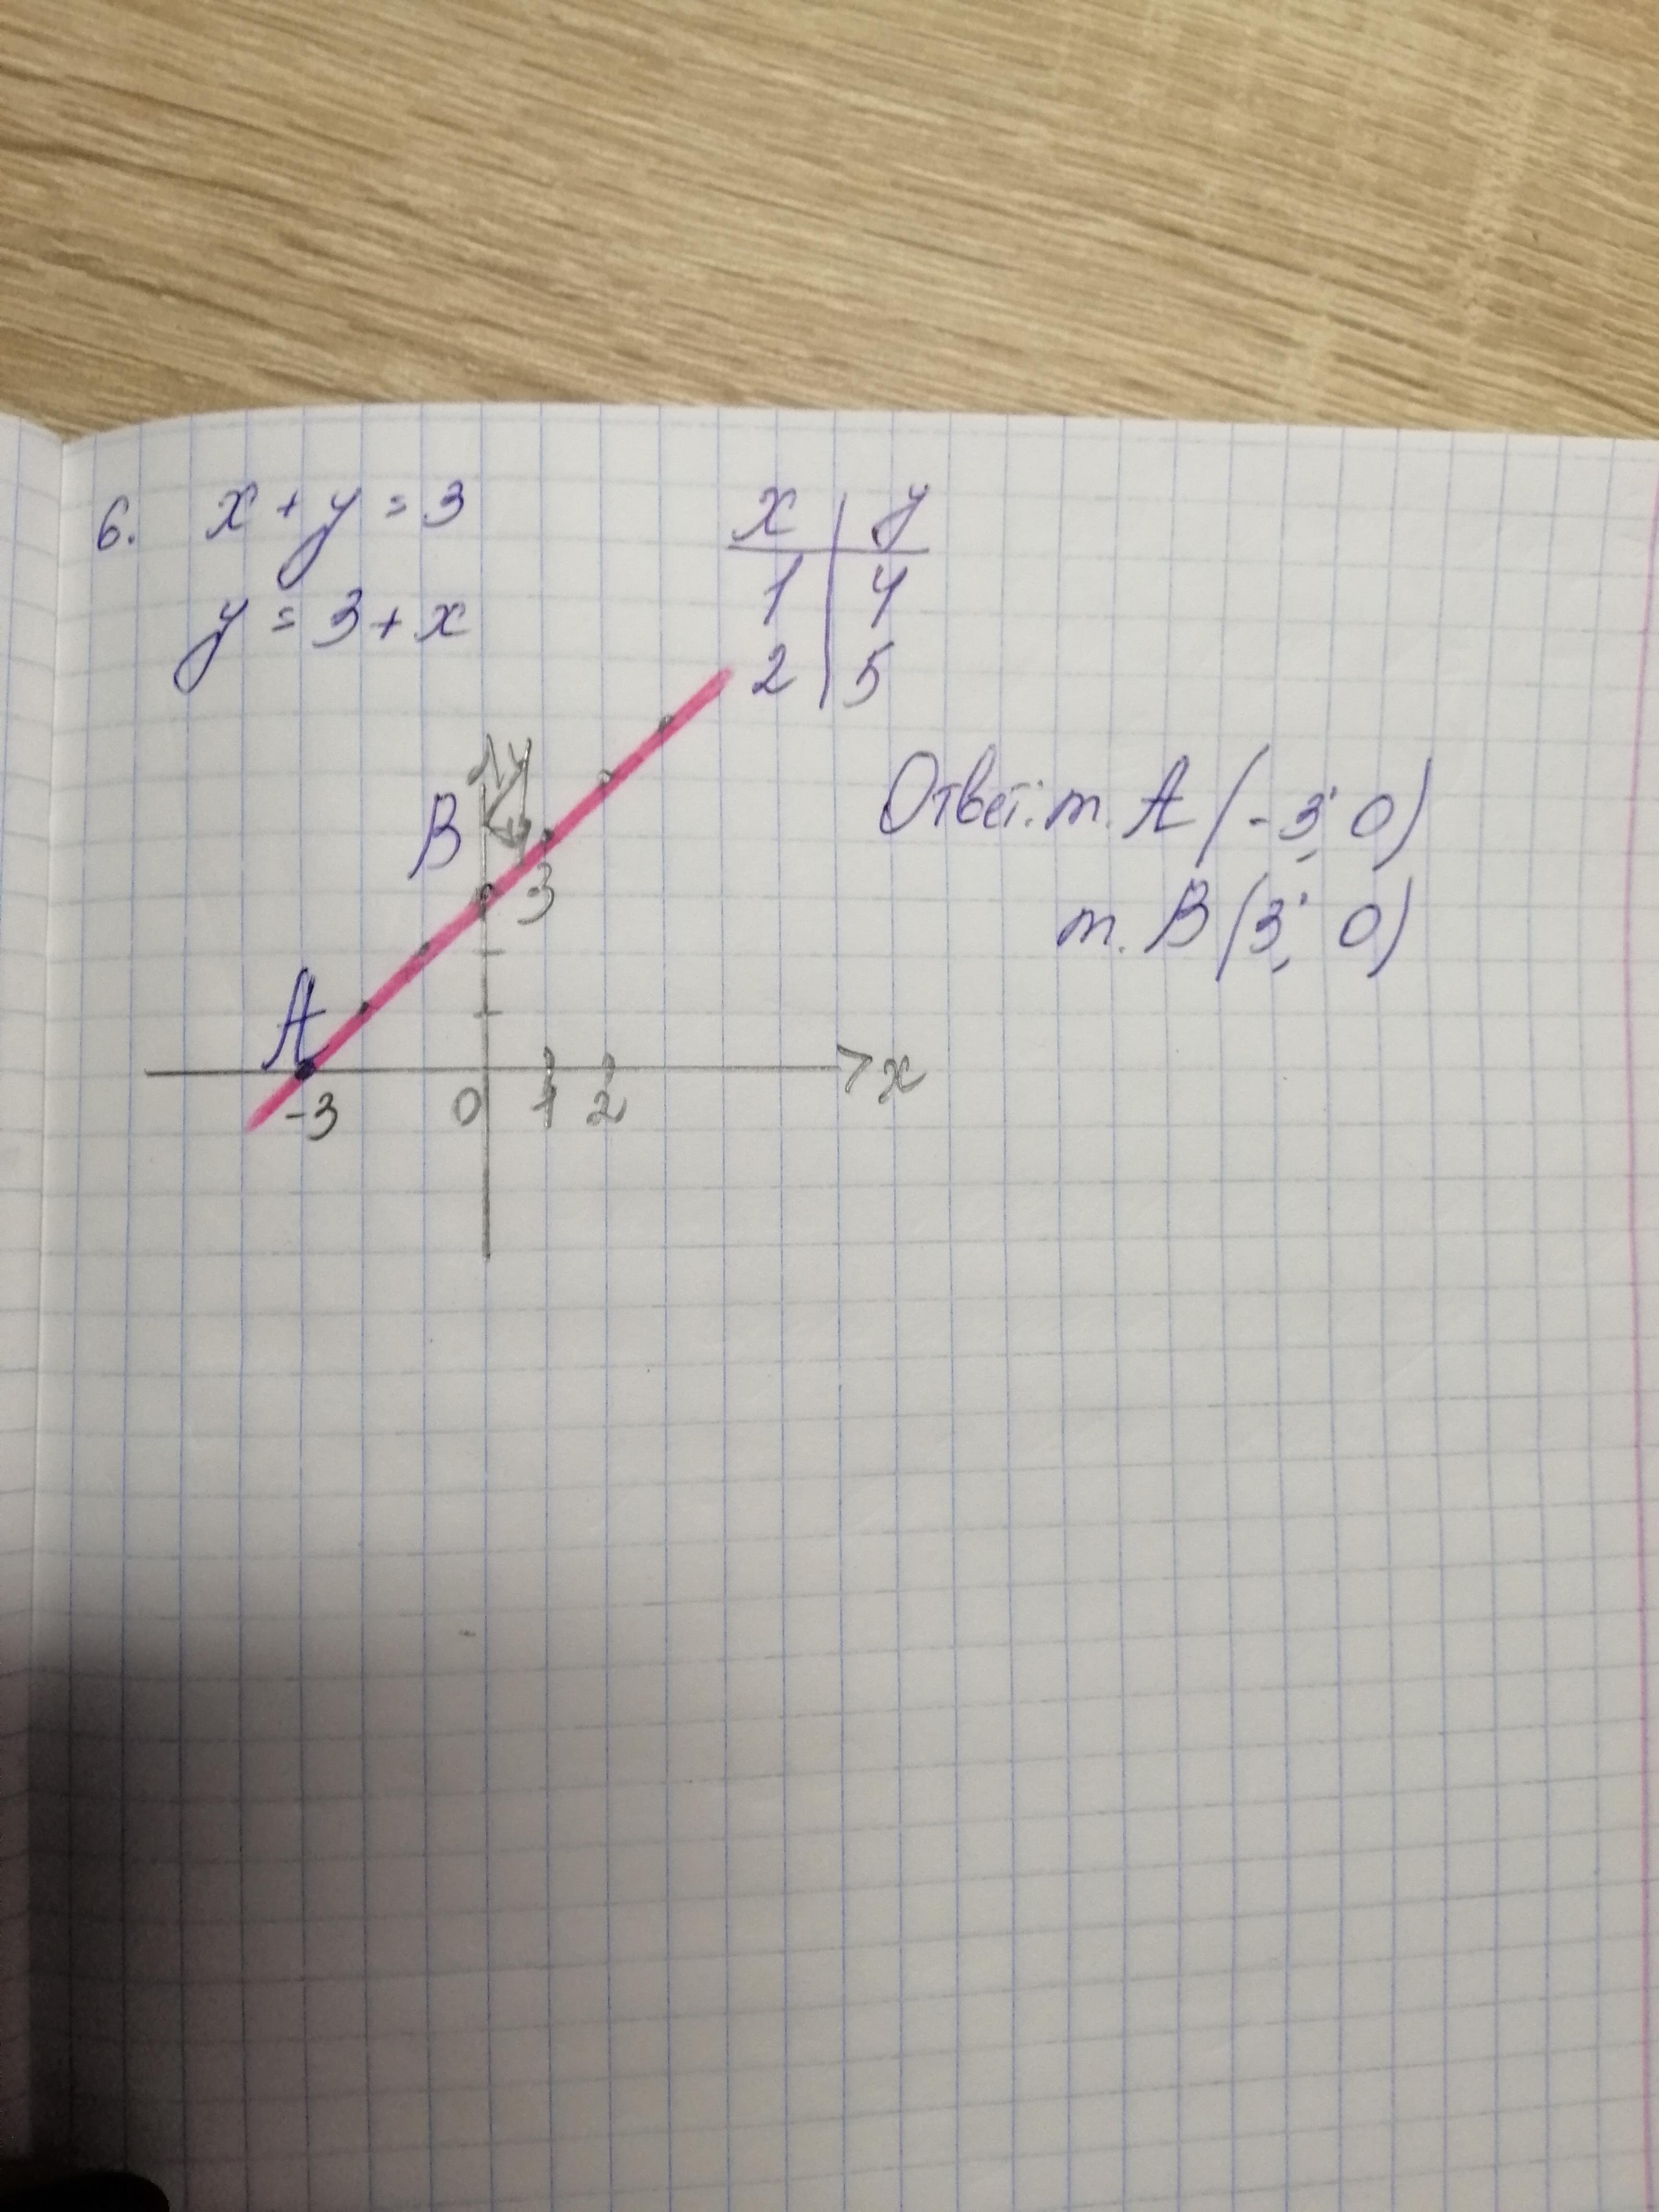 6. x + y = 3
y = 3 + x
x y
1 4
2 5
Ответ: т. A (-3; 0)
т. B (3; 0)
y
B
3
A
-3 0 1 2 x